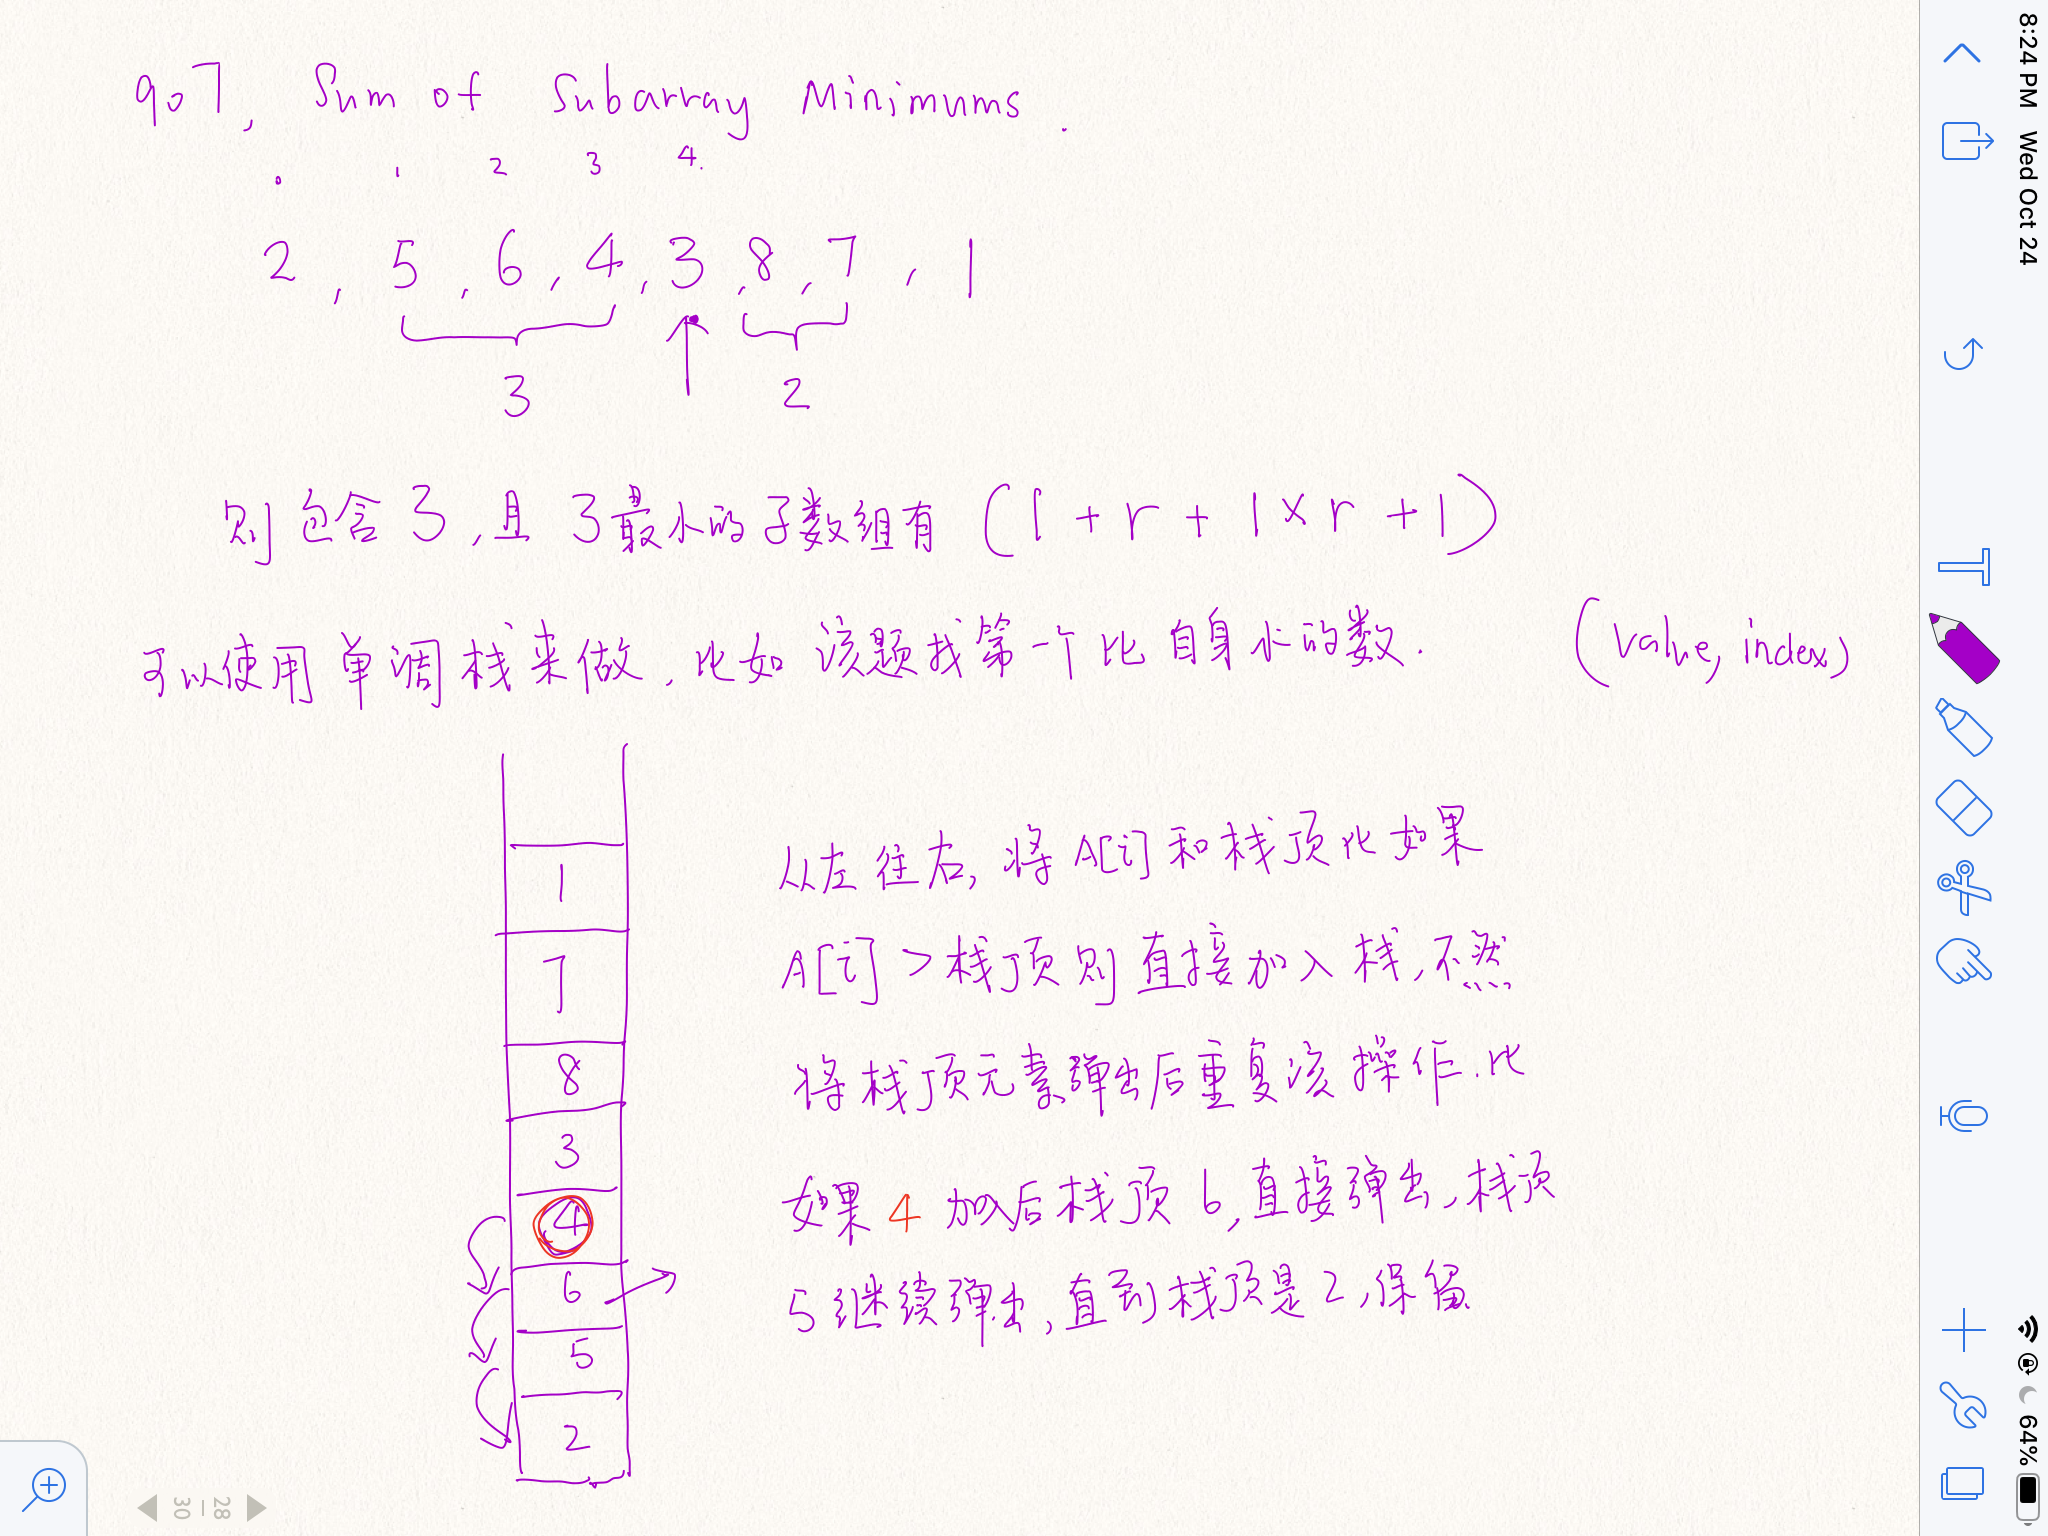 907, Sum of Subarray Minimums.
0 1 2 3 4.
2, 5, 6, 4, 3, 8, 7, 1
3 2
则包含 3, 且 3 最小的子数组有 (l + r + l × r + 1)
可以使用单调栈来做, 比如该题找第一个比自身小的数. (value, index)
1
7
8
3
4
6
5
2
从左往右, 将 A[i] 和栈顶比如果
A[i] > 栈顶则直接加入栈, 不然
将栈顶元素弹出后重复该操作. 比
如果 4 加入后栈顶 6, 直接弹出, 栈顶
5 继续弹出, 直到栈顶是 2, 保留
8:24 PM Wed Oct 24
64%
28 – 30